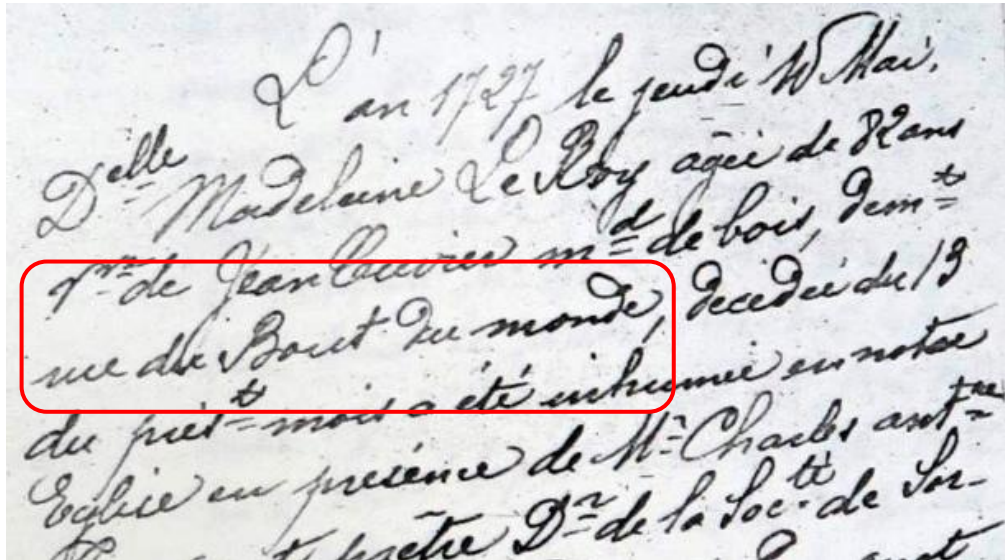 L'an 1727 le jeudi Mai.
Delle Madeleine Le Roy agée de 82 ans
de Jean Cuvier md de bois, demt
rue du Bout du monde, decedée du 13
du prést mois a été inhumée en notre
Eglise en présence de Mr Charles antne
prêtre Dr de la Socté de Sor-